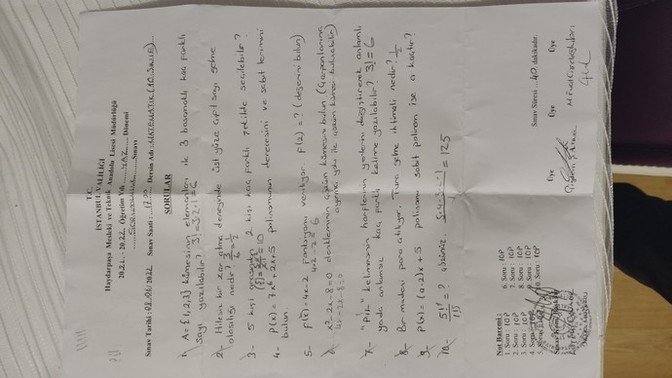 T.C.
İSTANBUL VALİLİĞİ
Haydarpaşa Mesleki ve Teknik Anadolu Lisesi Müdürlüğü
2021 - 2022 Öğretim Yılı YAZ Dönemi
SORUMLULUK Sınavı
Sınav Tarihi : Sınav Saati : Dersin Adı : MATEMATİK (10. SINIF)
SORULAR
1. A = {1,2,3} kümesinin elemanları ile 3 basamaklı kaç farklı
sayı yazılabilir? 3! = 3.2.1 = 6
2- Hilesiz bir zar atma deneyinde üst yüze çift sayı gelme
olasılığı nedir? 3/6 = 1/2
3- 5 kişi arasından 2 kişi kaç farklı şekilde seçilebilir?
= 10
4. P(x) = 7x⁶ + 2x + 5 polinomunun derecesini ve sabit terimini
bulun.
5- F(x) = 4x - 2 fonksiyonu veriliyor F(2) = ? (değerini bulun)
4.2 - 2 = 6
6- x² - 2x - 8 = 0 denkleminin çözüm kümesini bulun (Çarpanlarına
ayırma yolu ile çözüm kümesi bulunabilir)
7- "Pik" kelimesinin harflerinin yerlerini değiştirerek anlamlı
yada anlamsız kaç farklı kelime yazılabilir? 3! = 6
8- Bir madeni para atılıyor. Tura gelme ihtimali nedir? 1/2
9- P(x) = (a-2)x + 5 polinomu sabit polinom ise a kaçtır?
10- 5!/1! = ? çözünüz = 125
Not Baremi :
1. Soru : 10P 6. Soru : 10P
2. Soru : 10P 7. Soru : 10P
3. Soru : 10P 8. Soru : 10P
4. Soru 9. Soru : 10P
5. Soru 10. Soru : 10P
Sınav Süresi : 40 dakikadır.
Üye Üye